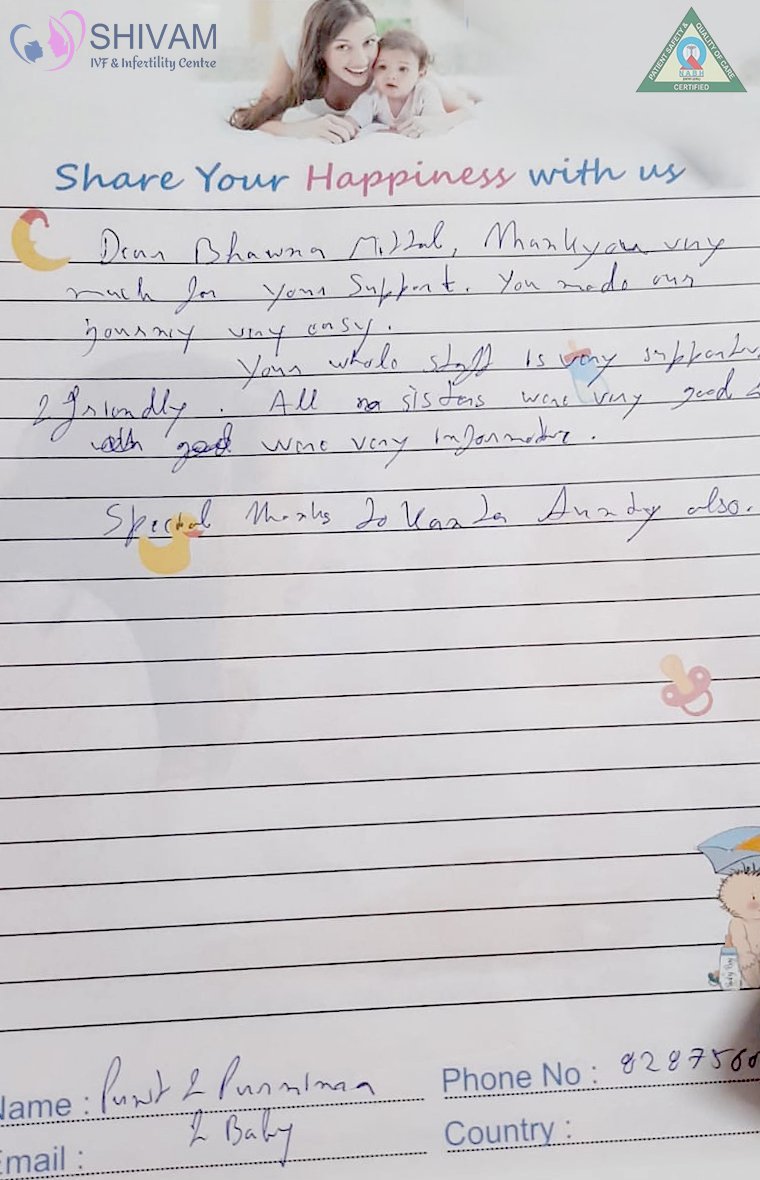 SHIVAM
IVF & Infertility Centre
PATIENT SAFETY & QUALITY OF CARE
N.A.B.H
CERTIFIED
Share Your Happiness with us
Dear Bhawna Mittal, Thankyou very
much for your support. You made our
journey very easy.
Your whole staff is very supportiv
& friendly. All sisters were very good &
were very informative.
Special thanks to Kanta Aunty also.
Name : Punit & Purnimaa
& Baby
Phone No : 8287566
Email :
Country :